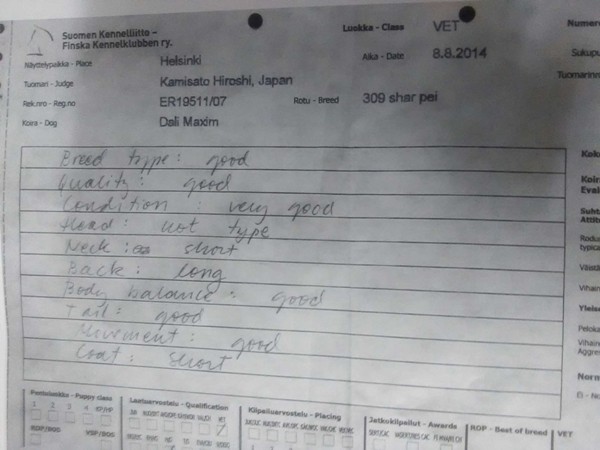 Suomen Kennelliitto –
Finska Kennelklubben ry.
Luokka - Class VET Numero
Näyttelypaikka - Place Helsinki Aika - Date 8.8.2014 Sukupu
Tuomari - Judge Kamisato Hiroshi, Japan Tuomarinn
Rek.nro - Reg.no ER19511/07 Rotu - Breed 309 shar pei
Koira - Dog Dali Maxim
Breed type: good
Quality: good
Condition : very good
Head: not type
Neck: short
Back: long
Body balance: good
Tail: good
Movement: good
Coat: short
Koko
Koira
Eval
Suhta
Attit
Rodu
typica
Väistä
Vihain
Yleise
Peloka
Vihain
Aggre
Norm
Ei - No
Pentuluokka - Puppy class
1 2 3 4 KP/HP
ROP/BOB VSP/BOS
Laatuarvostelu - Qualification
Kilpailuarvostelu - Placing
Jatkokilpailut - Awards
ROP - Best of breed
VET